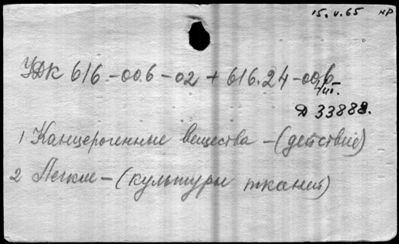 15.V.65 НР
УДК 616-006-02 + 616.24-006
Д 33888.
1 Канцерогенные вещества - (действие)
2 Легкие - (культуры ткания)